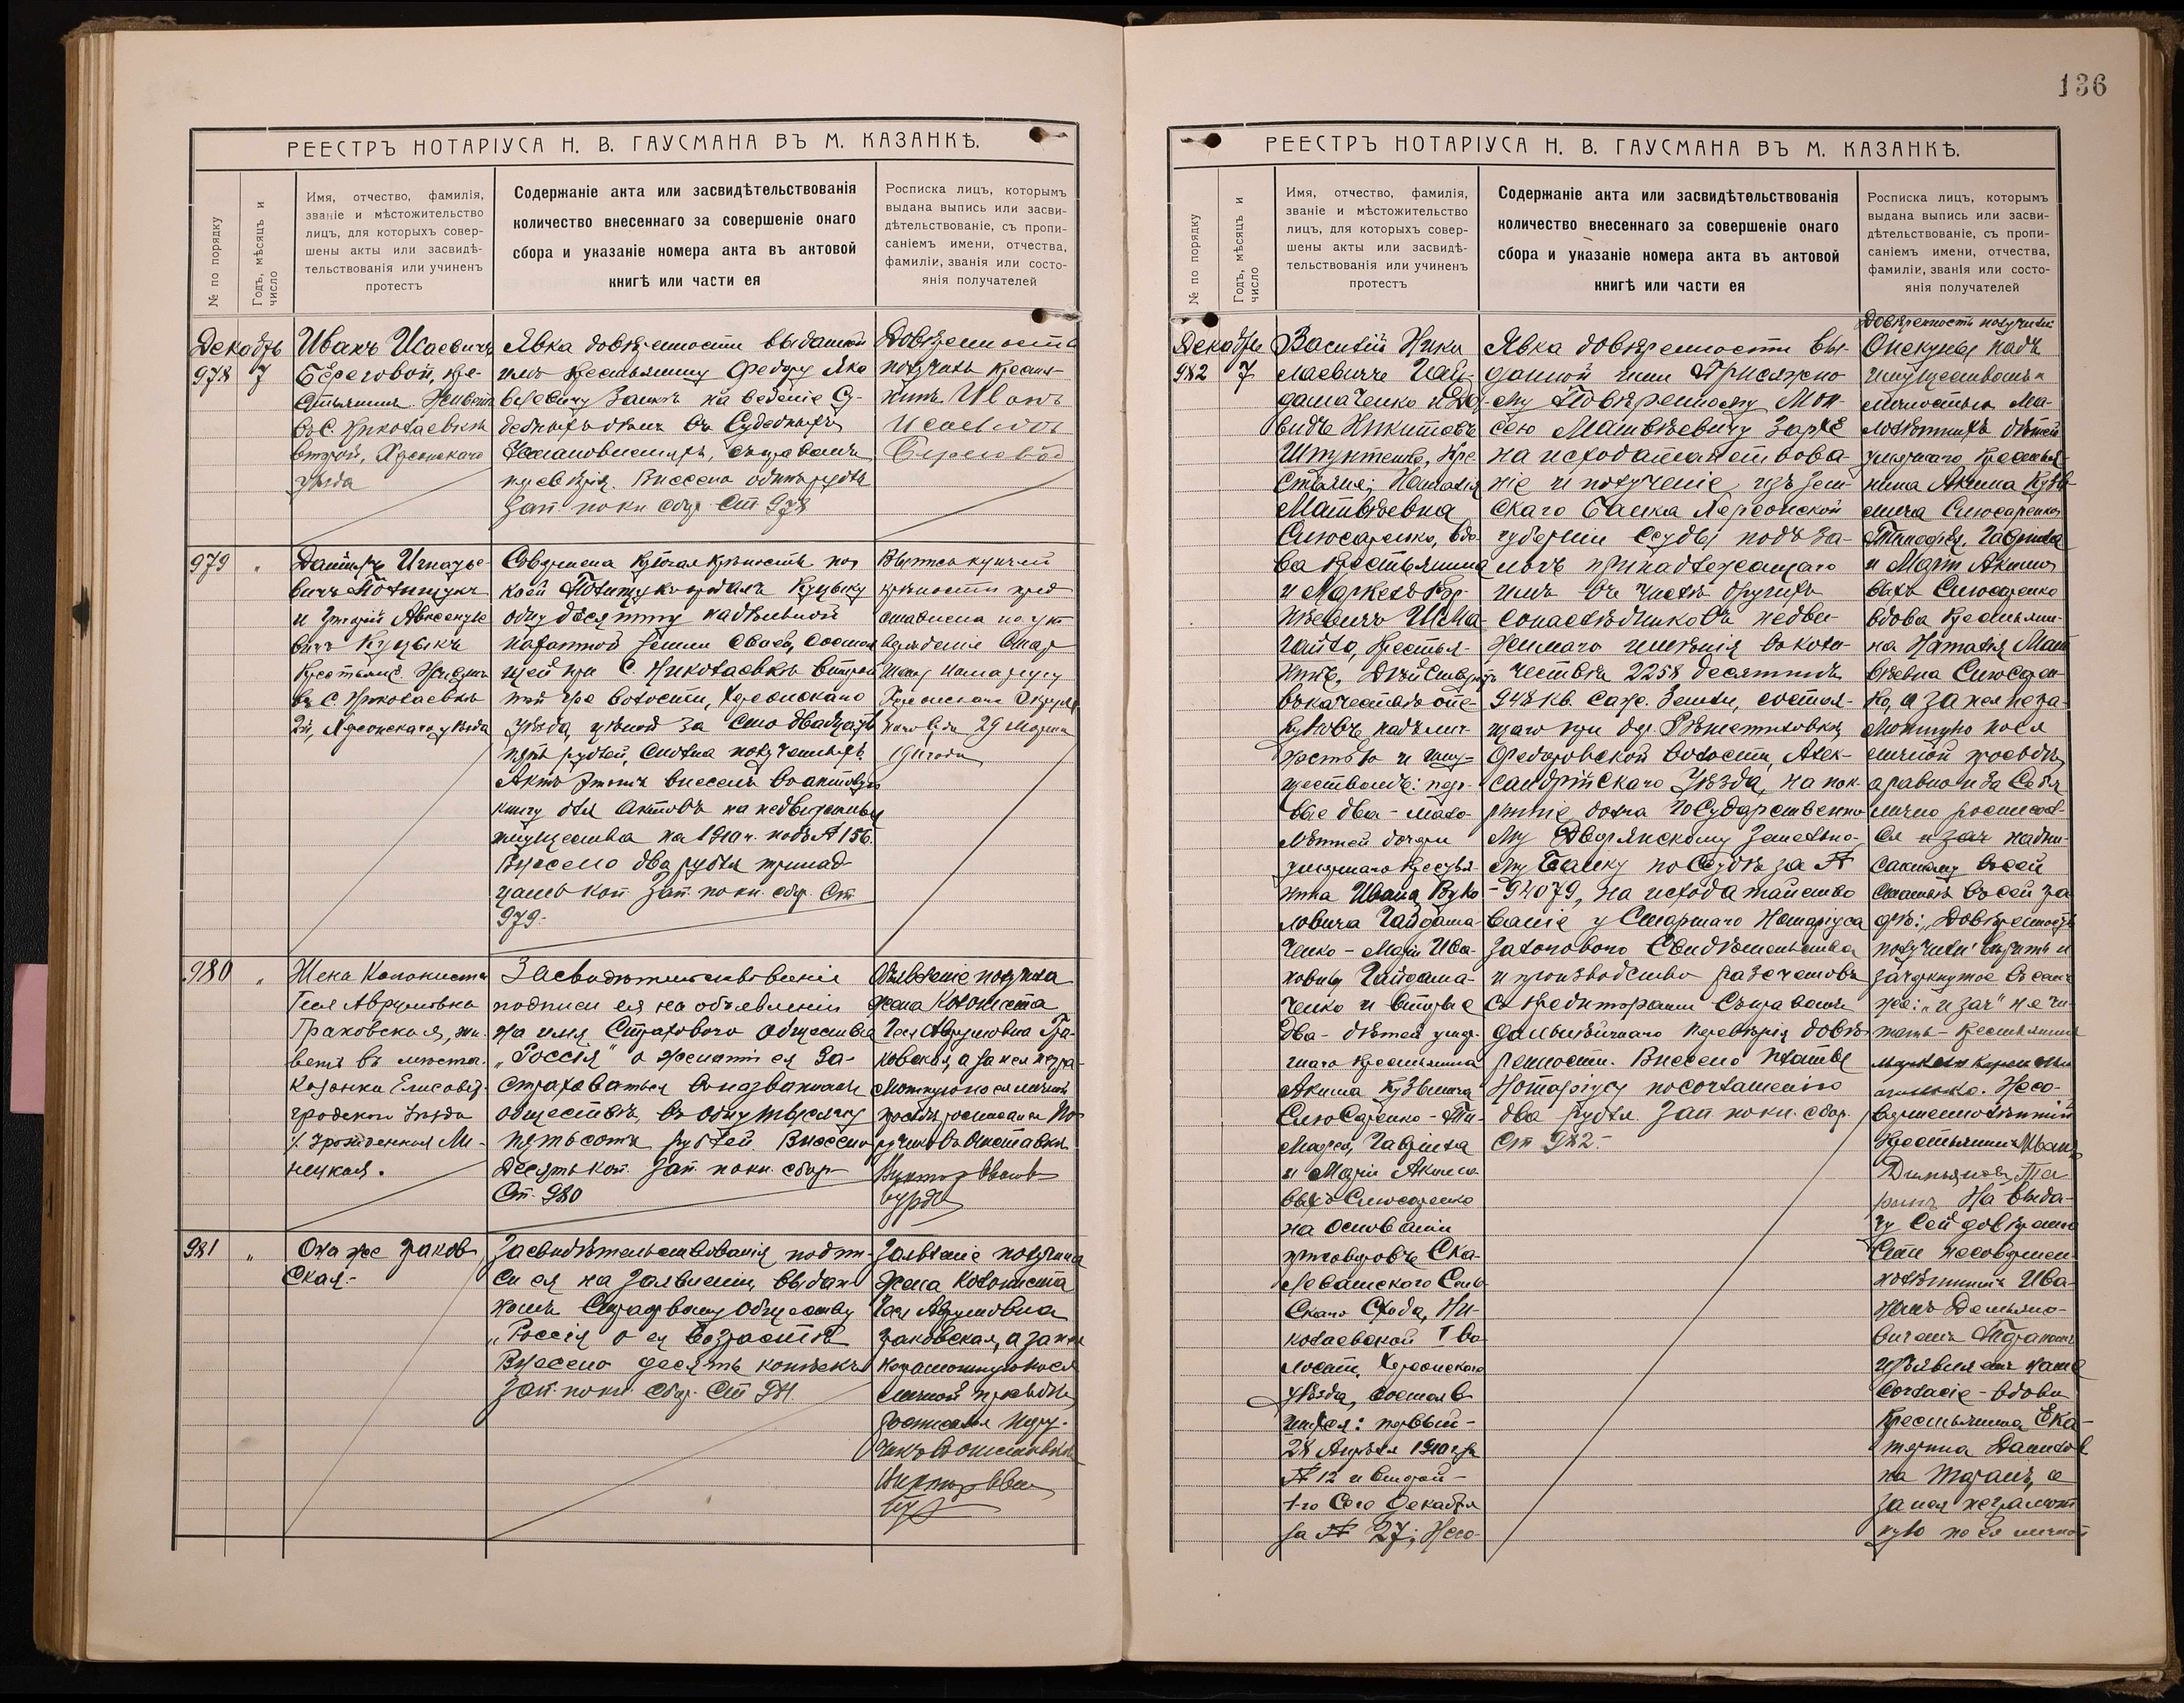 136
РЕЕСТРЪ НОТАРІУСА Н. В. ГАУСМАНА ВЪ М. КАЗАНКѢ.
№ по порядку
Годъ, мѣсяцъ и
число
Имя, отчество, фамилія,
званіе и мѣстожительство
лицъ, для которыхъ совер-
шены акты или засвидѣ-
тельствованія или учиненъ
протестъ
Содержаніе акта или засвидѣтельствованія
количество внесеннаго за совершеніе онаго
сбора и указаніе номера акта въ актовой
книгѣ или части ея
Росписка лицъ, которымъ
выдана выпись или засви-
дѣтельствованіе, съ пропи-
саніемъ имени, отчества,
фамиліи, званія или состо-
янія получателей
Декабрь
978 7
Иванъ Исаевичъ
Береговой, кре-
стьянинъ. Живетъ
въ с. Николаевкѣ
второй, Херсонскаго
уѣзда
Явка довѣренности выданной
имъ крестьянину Федору Яко
влевичу на веденіе су-
дебныхъ дѣлъ въ Судебныхъ
Установленіяхъ, съ правомъ
передовѣрія. Внесено одинъ рубль
Зап. по кн. сбор. Ст 978
Довѣренность
получилъ крестья-
нинъ Иванъ
Исаевичъ
Береговой
979 "
Даніилъ Игнатье
вичъ Полищукъ
и Григорій Авксентье
вичъ Куцыкъ
Крестьяне. Живутъ
въ с. Николаевкѣ
2й, Херсонскаго уѣзда
Совершена купчая крѣпость по
коей Полищукъ продалъ Куцыку
одну десятину надѣльной
пахатной земли своей, состоя
щей при с. Николаевкѣ второй
той же волости, Херсонскаго
уѣзда, цѣной за сто двадцать
пять рублей, сполна полученныхъ.
Актъ этотъ внесенъ въ актовую
книгу для актовъ на недвижимыя
имущества на 1910 г. подъ № 156.
Внесено два рубля тринад-
цать коп Зап. по кн. сбор. Ст
979.
Выпись купчей
крѣпости пред
ставлена на ут
вержденіе Стар
шему Нотаріусу
Херсонскаго Окруж
наго Суда 29 Марта
1911 года
980 "
Жена Колониста
Геся Аврумовна
Граковская, жи-
ветъ въ мѣст.
Казанкѣ Елисавет-
градскаго уѣзда
Засвидѣтельствованіе
подписи ея на объявленіи
на имя Страховаго Общества
„Россія" о желаніи ея за-
страховаться въ названномъ
обществѣ, въ одну тысячу
пятьсотъ рублей. Внесено
десять коп. Зап. по кн. сбор
Ст. 980
Объявленіе получила
жена Колониста
Геся Аврумовна Гра-
ковская, а за нея негра-
мотную по ея личной
просьбѣ росписался По-
981 "
Она же Граков
ская.-
Засвидѣтельствованія подпи-
си ея на заявленіи, выдан-
номъ Страховому Обществу
„Россія о ея возрастѣ
Внесено десять копѣекъ
Зап. по кн. сбор. Ст 981.
Заявленіе получила
жена Колониста
Геся Аврумовна
Граковская, а за нея
неграмотную по ея
личной просьбѣ
росписался
РЕЕСТРЪ НОТАРІУСА Н. В. ГАУСМАНА ВЪ М. КАЗАНКѢ.
№ по порядку
Годъ, мѣсяцъ и
число
Имя, отчество, фамилія,
званіе и мѣстожительство
лицъ, для которыхъ совер-
шены акты или засвидѣ-
тельствованія или учиненъ
протестъ
Содержаніе акта или засвидѣтельствованія
количество внесеннаго за совершеніе онаго
сбора и указаніе номера акта въ актовой
книгѣ или части ея
Росписка лицъ, которымъ
выдана выпись или засви-
дѣтельствованіе, съ пропи-
саніемъ имени, отчества,
фамиліи, званія или состо-
янія получателей
Декабрь
982 7
Василій Нико
лаевичъ Гай-
дамаченко и Да-
видъ Никитовъ
кре-
стьяне; Наталія
Матвѣевна
Слюсаренко, вдо-
ва крестьянина
крестья-
въ качествѣ опе-
куновъ надъ лич-
ностью и иму-
ществомъ: пер-
вые два - мало-
лѣтней дочери
умершаго крестья-
нина Ивана
Гайдама-
ченко - Маріи Ива-
новны Гайдама-
ченко и вторые
два - дѣтей умер-
шаго крестьянина
Акима Кузьмича
Слюсаренко - Ти-
мофея, Гавріила
и Маріи Акимо-
выхъ Слюсаренко
на основаніи
приговоровъ
Сель-
скаго Схода, Ни-
колаевской I во-
лости, Херсонскаго
уѣзда, состояв-
шихся: первый -
28 Апрѣля 1910 г за
№ 12 и второй -
1-го сего Декабря
за № 27;
Явка довѣренности вы-
данной ими Присяжно-
му Повѣренному Мои-
сею Матвѣевичу
на исходатайствова-
ніе и полученіе изъ Зем-
скаго Банка Херсонской
губерніи ссуды подъ за-
логъ принадлежащаго
имъ въ числѣ другихъ
сонаслѣдниковъ недви-
жимаго имѣнія въ коли-
чествѣ 2258 десятинъ
948 кв. саж. земли, состоя-
щаго при дер.
Федоровской волости, Алек-
сандрійскаго уѣзда, на пок-
рытіе долга Государственно
му Дворянскому Земельно-
му Банку по ссудѣ за №
- 94079, на исходатайство
ваніе у Старшаго Нотаріуса
Залоговаго Свидѣтельства
и производство разсчетовъ
съ кредиторами съ правомъ
дальнѣйшаго передовѣрія довѣ-
ренности. Внесено платы
Нотаріусу по соглашенію
два рубля. Зап. по кн. сбор.
Ст 982.-
Довѣренность получили:
Опекуны надъ
имуществомъ и
личностью ма-
лолѣтнихъ дѣтей
умершаго крестья-
нина Акима Кузь-
мича Слюсаренко
Тимофея, Гавріила
и Маріи Акимо-
выхъ Слюсаренко
вдова крестьяни-
на Наталія Мат
вѣевна Слюсарен-
ко, а за нея негра-
мотную по ея
личной просьбѣ
а равно и за себя
лично росписал-
ся и зач надпи-
санному въ сей
статьѣ
„Довѣренность
получили" читать и
зачеркнутое
же: „и зач" не чи-
тать - крестьянинъ
крестьянинъ Иванъ
На выда-
чу сей довѣренно
сти несовершен-
нолѣтнимъ Ива-
номъ Демьяно-
вичемъ
изъявляетъ свое
согласіе - вдова
крестьянина Ека-
терина Данилов
на а
за нея неграмот
ную по ея личной